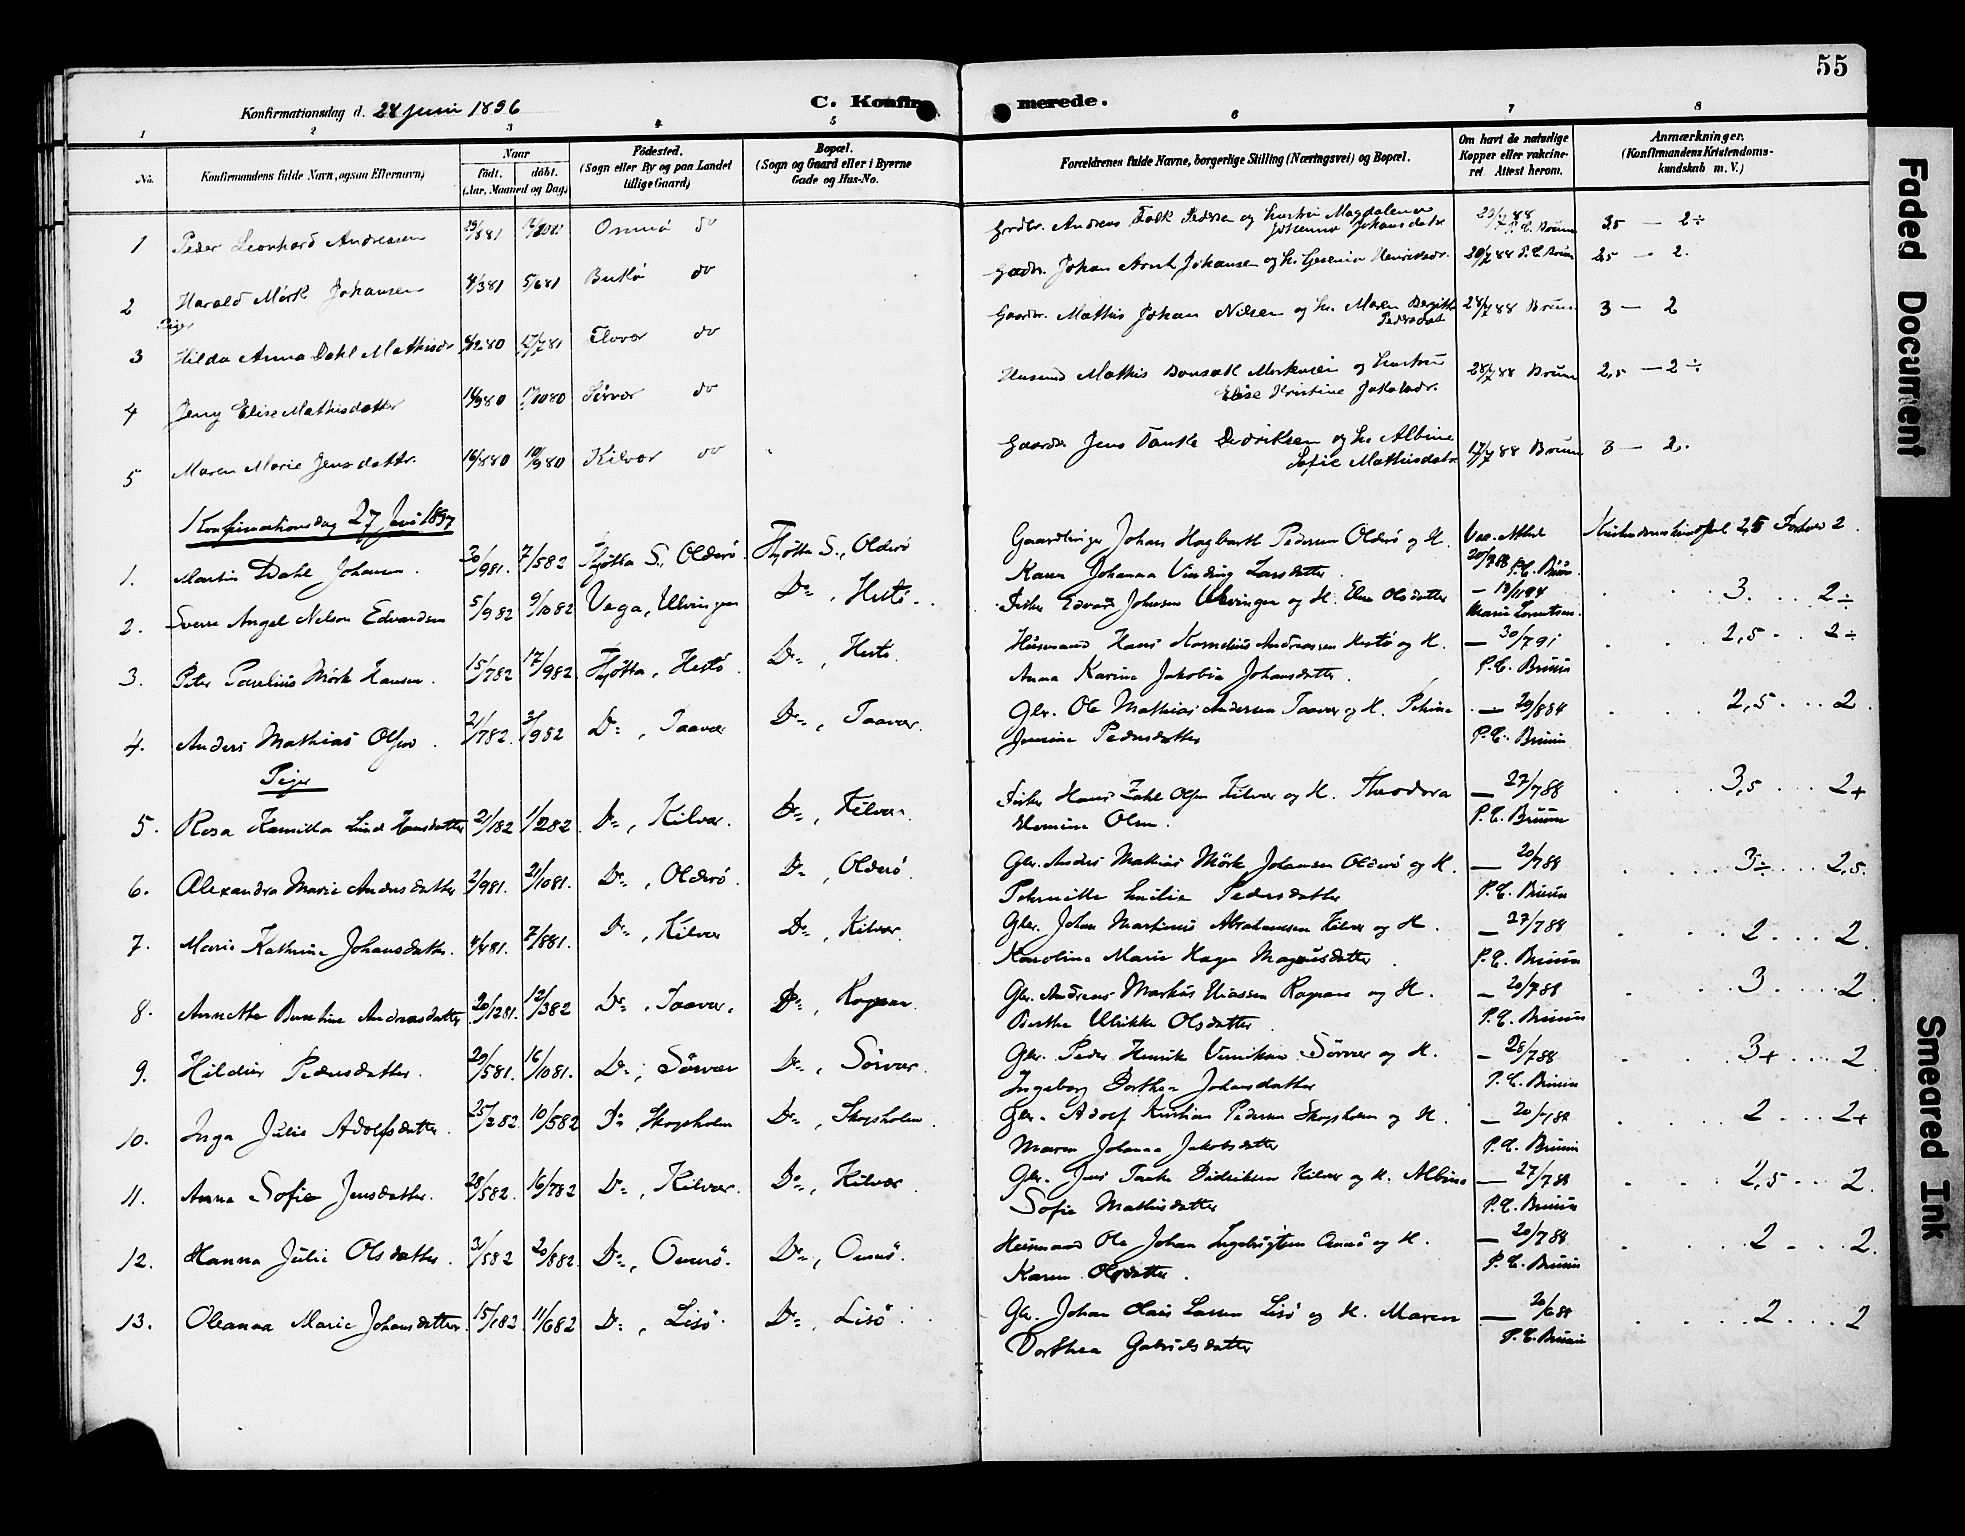 55
Konfirmationsdag d. 28 Juni 1896
C. Konfirmerede.
1 2 3 4 5 6 7 8
No. Konfirmandens fulde Navn, ogsaa Efternavn) Naar født. døbt. (Aar, Maaned og Dag) Fødested. (Sogn eller By og paa Landet tillige Gaard) Bopæl. (Sogn og Gaard eller i Byerne Gade og Hus-No. Forældrenes fulde Navne, borgerlige Stilling (Næringsvei) og Bopæl. Om havt de naturlige Kopper eller vakcineret. Attest herom. Anmærkninger. (Konfirmandens Kristendomskundskab m. V.)
1 Peder Leonhard Andreasen Omnø do Andreas Falk Pedersen og Hustru Magdalena
Johanna Johansdatr P. C. Bruun 2-
2 Harald Mörk Johansen 4/381 5/681 do Gaardbr. Johan Arnt Johansen og Hs. Henriksdr. 20/788 P. C. Bruun 2,5 - 2.
Piger
3 Hilda Anna Dahl Mathisdr 17/781 Flovær do Gaardbr. Mathis Johan Nilsen og Hs. Maren Bergitte
Pedersdat 28/788 Bruun 3 - 2
4 Jenny Elise Mathisdatter Sørvær do Husmd Mathis og Hustru
Elise Kristine Jakobsdr. 28/788 Bruun 2,5 - 2÷
5 Maren Marie Jensdattr. 16/880 10/980 Kilvær do Gaardbr Jens Tanke Dedriksen og Hs. Albine
Sofie Mathisdatr 17/788 Bruun 3 - 2.
Konfirmationsdag 27 Juni 1897
1. Martin Dahl Johansen. 30/981. 7/582 Tjøtta S., Olderø Tjøtta S., Olderø Gaardbruger Johan Hagbart Pedersen Olderø og H.
Karen Johanna Vinding Larsdatter. Vac. Attest 20/788 P. C. Bruun. 2,5 Forhør 2.
2. Sverre Angel Nelson Edvardsen 5/982 9/1082 Vega, Ulvingen Do, Hestø. Fisker Edvard Johnsen Ulvingen og H. Olsdatter 3. . . 2÷
3. Peter Paulius Mörk Hansen. 15/782 17/982 Tjøtta, Hestø Do, Hestø. Husmand Hans Kornelius Andreassen Hestø og H.
Anna Karine Jakobia Johansdatter. - 30/791 P. C. Bruun 2,5 . . . 2÷
4. Anders Mathias Olsen. 21/782. 3/982 Do, Taavær Do, Taavær. Gbr. Ole Mathias Andersen Taavær og H.
Pedersdatter - 29/884 P. C. Bruun 2,5 . . . 2.
Piger
5. Rosa Kamilla Lind Hansdatter 21/182 1/282 Do, Kilvær. Do, Kilvær. Fisker Hans Zahl Olsen Kilvær og H. Theodora
Olsen. - 27/788 P. C. Bruun 3,5 . . . 2+
6. Alexandra Marie Andersdatter 2/981. 21/1081. Do, Olderø. Do, Olderø. Gbr. Anders Mathias Mörk Johansen Olderø og H.
Emilie Pedersdatter - 20/788 P. C. Bruun 3÷ . . . 2,5.
7. Marie Kathrine Johansdatter. 4/481. 7/881. Do, Kilvær Do, Kilvær. Gbr. Johan Martinus Abrahamsen Kilvær og H.
Karoline Marie Hagen Magnusdatter. - 27/788 P. C. Bruun 2 . . . 2.
8. Annette Andreasdatter 20/1281. 12/382 Do, Taavær. Do, Gbr. Andreas Markus og H.
Berthe Ulrikke Olsdatter. - 20/788 P. C. Bruun 3 . . . 2.
9. Hildur Pedersdatter. 29/581. 16/1081. Do, Sørvær Do, Sørvær. Gbr. Peder Henrik Sørvær og H.
Ingeborg Dorthea Johansdatter - 28/788 P. C. Bruun 3+ . . . 2
10. Inga Julie Adolfsdatter. 25/282. 10/582 Do, Skogsholm Do, Skogsholm. Gbr. Adolf Kristian Pedersen Skogsholm og H.
Maren Johanna Jakobsdatter P. C. Bruun 2 . . . 2+
11. Anna Sofie Jensdatter. 28/582. 16/782 Do, Kilvær. Do, Kilvær. Gbr. Jens Tanke Didriksen Kilvær og H. Albine
Sofie Mathisdatter - 27/788 P. C. Bruun 2,5 . . . 2.
12. Hanna Julie Olsdatter. 31/582 20/882 Do, Omnø. Do, Omnø. Husmand Ole Johan Ingebrigtsen Omnø og H.
Karen Olsdatter. - 20/788 P. C. Bruun 2 . . . 2.
13. Oleanna Marie Johansdatter 15/182 11/682 Do, Lisø. Do, Lisø. Gbr. Johan Olaus Larsen Lisø og H. Maren
Dorthea Gabrielsdatter - 20/688 P. C. Bruun 2 . . . 2
Faded Document
Smeared Ink